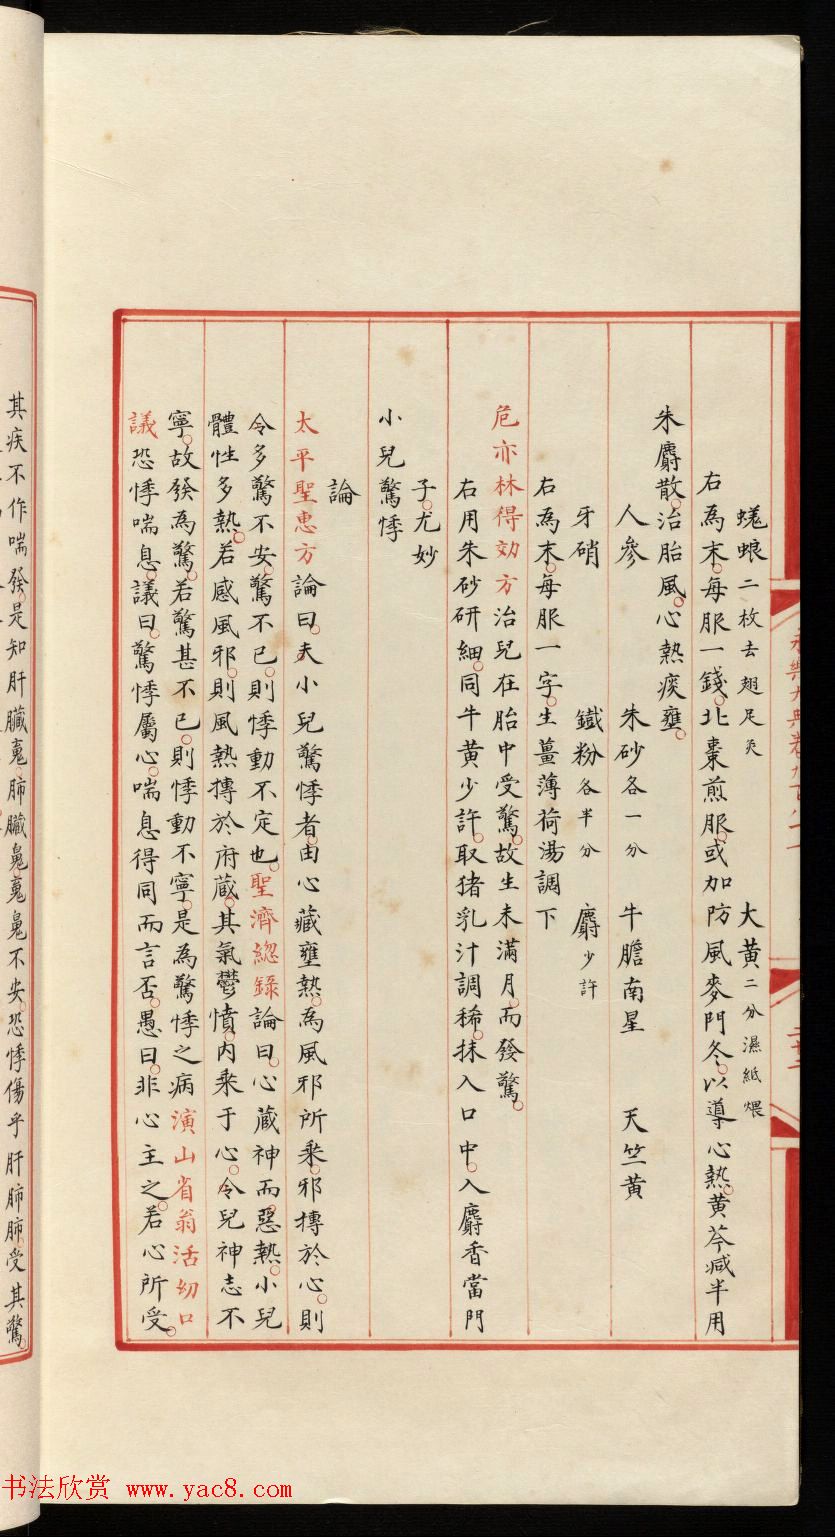 永樂大典卷九百八
蜣蜋二枚去翅足炙　大黃二分濕紙煨
右為末。每服一錢。北棗煎服。或加防風麥門冬。以導心熱。黃芩減半用
朱麝散。治胎風。心熱痰壅。
人參　朱砂各一分　牛膽南星　天竺黃
牙硝　鐵粉各半分　麝少許
右為末。每服一字。生薑薄荷湯調下
危亦林得効方治兒在胎中受驚。故生未滿月。而發驚。
右用朱砂研細。同牛黃少許。取猪乳汁調稀。抹入口中。入麝香當門
子。尤妙
小兒驚悸
論
太平聖惠方論曰。夫小兒驚悸者。由心藏壅熱。為風邪所乘。邪摶於心。則
令多驚不安。驚不已。則悸動不定也。聖濟緫錄論曰。心藏神而惡熱。小兒
體性多熱。若感風邪。則風熱摶於府藏。其氣鬱憤。內乘于心。令兒神志不
寧。故發為驚。若驚甚不已。則悸動不寧。是為驚悸之病演山省翁活幼口
議恐悸喘息。議曰。驚悸屬心。喘息得同而言否。愚曰。非心主之。若心所受。
其疾不作喘發。是知肝臟䰟。肺臟䰟。䰟䰟不安。恐悸傷乎肝肺。肺受其驚。
书法欣赏 www.yac8.com